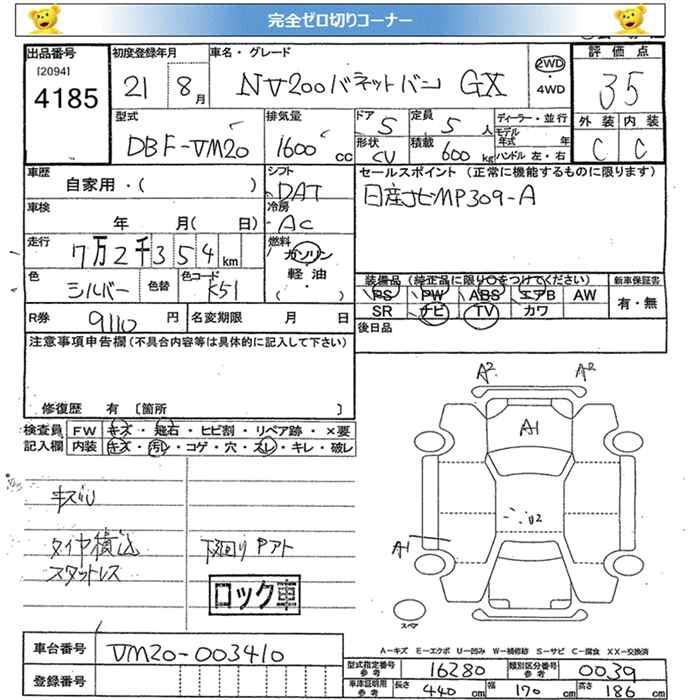 完全ゼロ切りコーナー
出品番号 初度登録年月 車名・グレード 評価点
[2094] 4185
21 8月 NV200バネットバン GX 2WD・4WD 35
型式 排気量 ドア 5 定員 5人 ディーラー・並行 外装 内装
DBF-VM20 1600cc 形状 CV 積載 600kg モデル年式 年 C C
ハンドル 左・右
車歴 シフト セールスポイント (正常に機能するものに限ります)
自家用・( ) DAT 日産ナビMP309-A
車検 年 月(日) 冷房 AC
走行 7万2千354km 燃料 ガソリン・軽油・( )
色 シルバー 色替 色コード K51
装備品 (純正品に限り○をつけてください) 新車保証書
PS PW ABS エアB AW 有・無
SR ナビ TV カワ
R券 9110円 名変期限 月 日 後日品
注意事項申告欄(不具合内容等は具体的に記入して下さい)
修復歴 有 〔箇所 〕
検査員記入欄 FW キズ・飛石・ヒビ割・リペア跡・×要
内装 キズ・汚レ・コゲ・穴・スレ・キレ・破レ
A2 A2
A1
U2
A1
キズU
タイヤ積込 下回りPアト
スタットレス
ロック車
スペア
A-キズ E-エクボ U-凹み W-補修跡 S-サビ C-腐食 XX-交換済
車台番号 VM20-003410
型式指定番号 参考 16280 類別区分番号 参考 0039
登録番号
車庫証明用 参考 長さ 440cm 幅 170cm 高さ 186cm